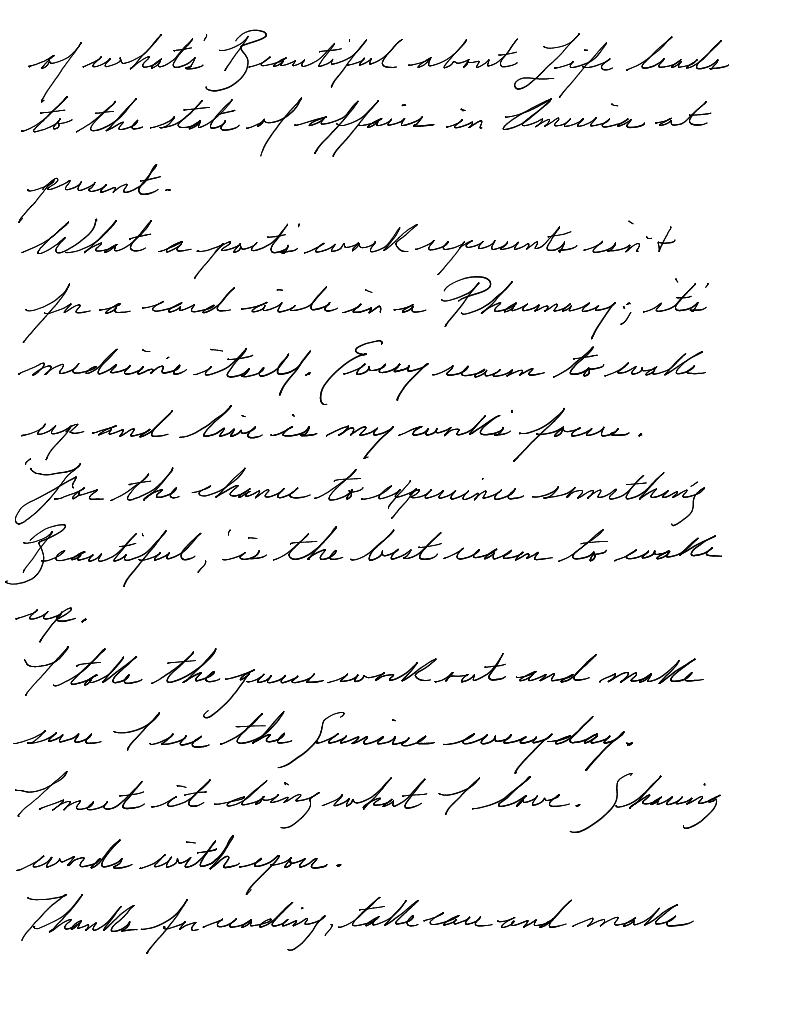 of what's Beautiful about Life leads
to the state of affairs in America at
present.
What a poet's work represents isn't
for a card aisle in a Pharmacy; it's
medicine itself. Every reason to wake
up and live is my work's focus.
'For the chance to experience something
Beautiful,' is the best reason to wake
up.
I take the guess work out and make
sure I see the Sunrise everyday.
I meet it doing what I love. Sharing
words with you.
Thanks for reading, take care and make